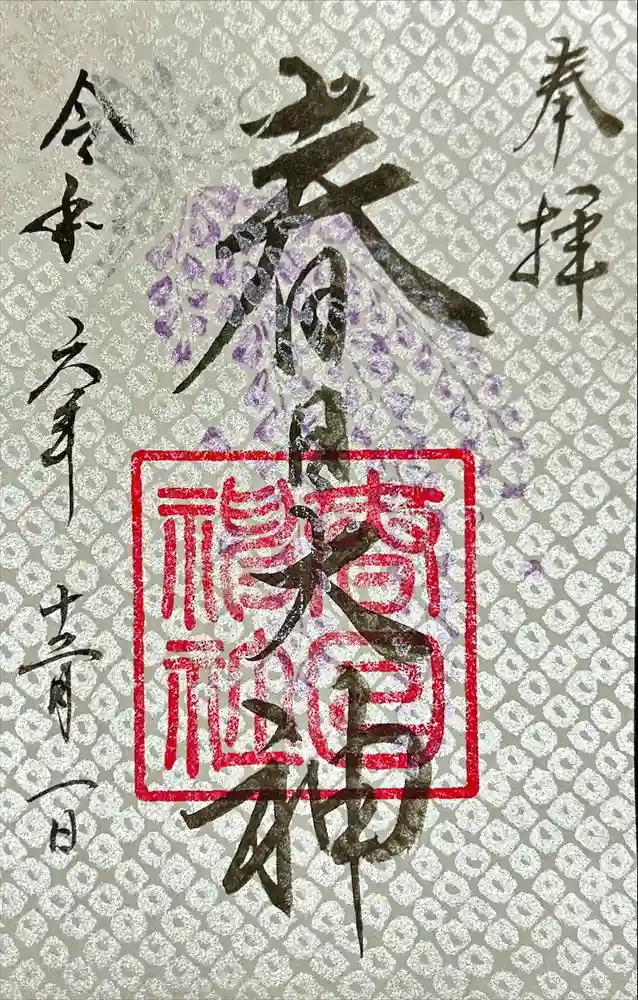 奉拝
春日大神
春日神社
令和六年十二月一日